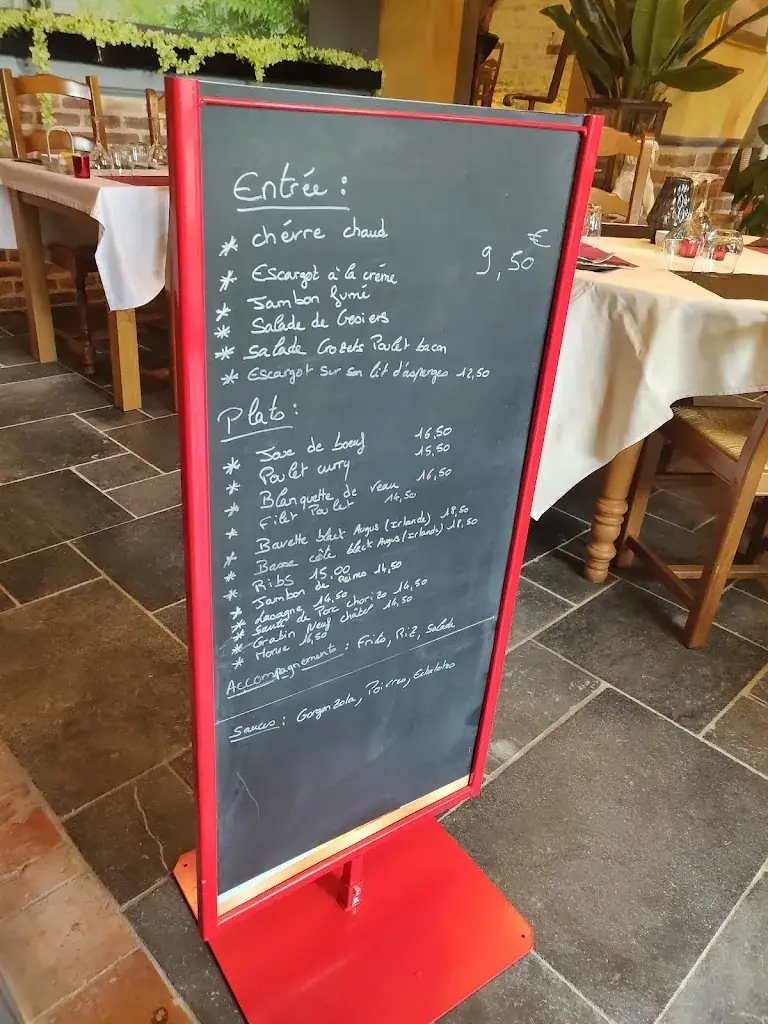 Entrée :
* chévre chaud
€
9,50
* Escargot à la créme
* Jambon fumé
* Salade de Gesiers
* Salade Crozets Poulet bacon
* Escargot sur son lit d'asperges 12,50
Plats :
* Joue de boeuf 16,50
* Poulet curry 15,50
* Blanquette de veau 16,50
Filet Poulet 14,50
* Bavette black Angus (Irlande) 18,50
* Basse côte black Angus (Irlande) 18,50
* Ribs 15,00
* Jambon de Reims 14,50
* Lasagne 14,50
* Sauté de Porc chorizo 14,50
* Gratin Neufchâtel 14,50
* Morue 16,50
Accompagnements : Frites, Riz, Salade
Sauces : Gorgonzola, Poivres, Echalotes